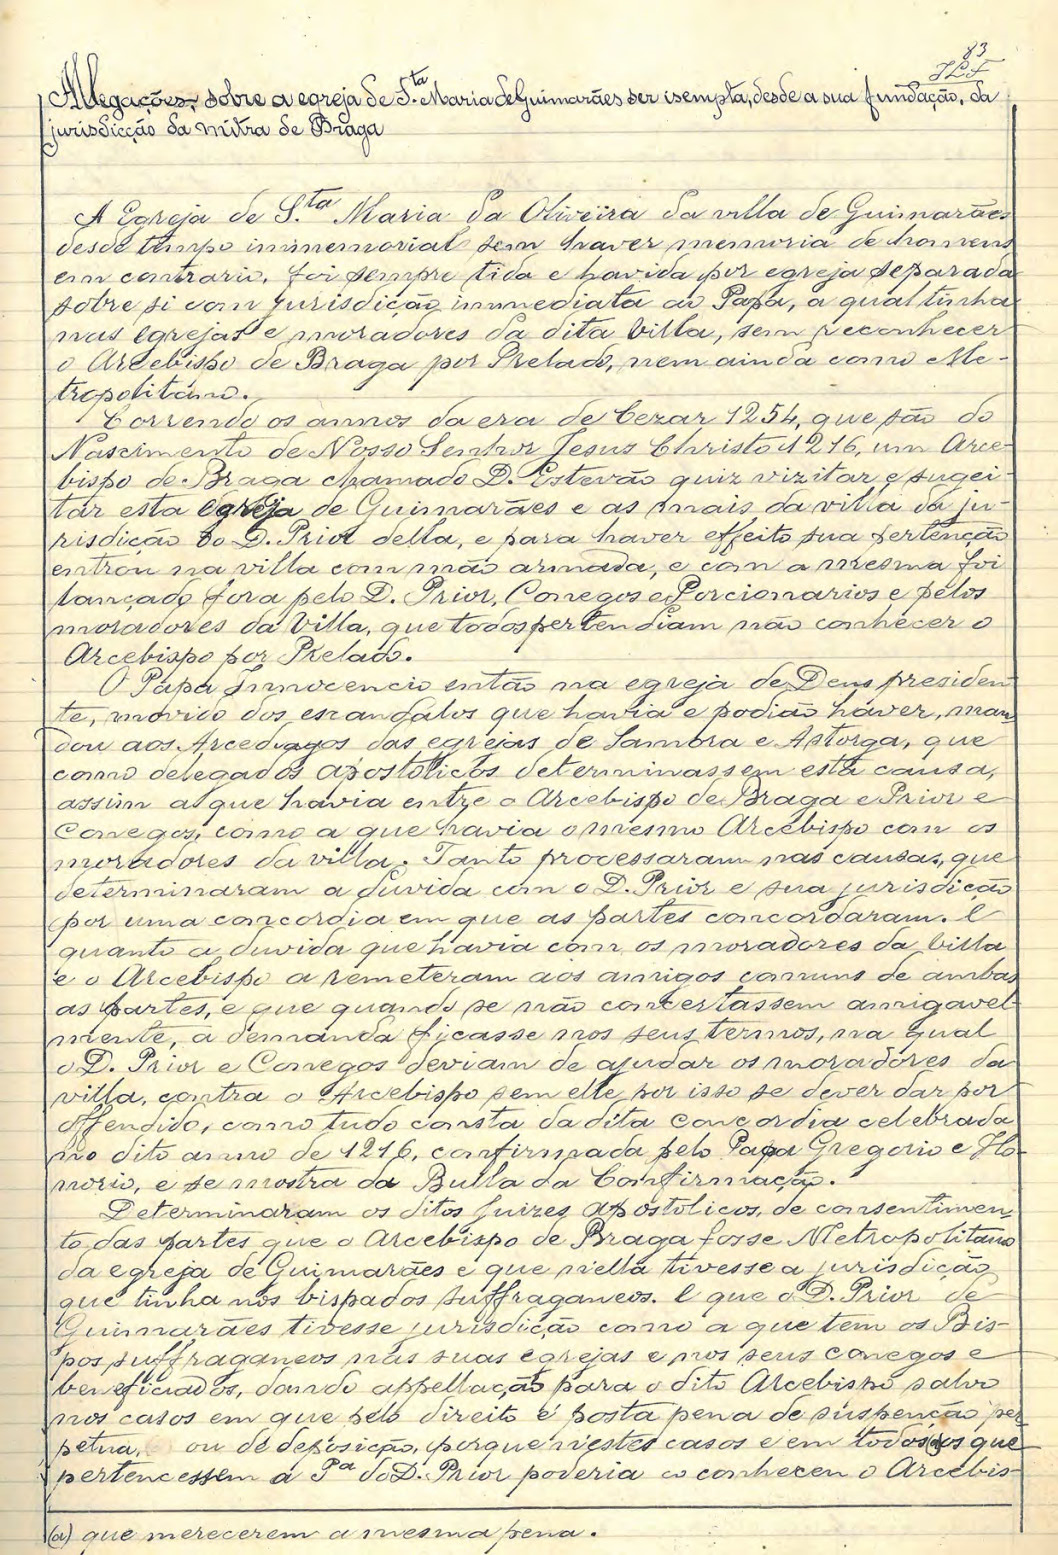 83
J L F
Allegações, sobre a egreja de S.ta Maria de Guimarães ser isempta, desde a sua fundação, da
jurisdicção da mitra de Braga
A Egreja de S.ta Maria da Oliveira da villa de Guimarães
desde tempo immemorial sem haver memoria de homens
em contrario, foi sempre tida e havida por egreja separada
sobre si com jurisdição immediata ao Papa, a qual tinha
nas egrejas e moradores da dita Villa, sem reconhecer
o Arcebispo de Braga por Prelado, nem ainda como Me-
tropolitano.
Correndo os annos da era de Cezar 1254, que são do
Nascimento de Nosso Senhor Jesus Christo 1216, um Arce-
bispo de Braga chamado D. Estevão quiz vizitar e sugei-
tar esta egreja de Guimarães e as mais da villa da ju-
risdição do D. Prior della, e para haver effeito sua pertenção
entrou na villa com mão armada, e com a mesma foi
lançado fora pelo D. Prior, Conegos e Porcionarios e pelos
moradores da Villa, que todos pertendiam não conhecer o
Arcebispo por Prelado.
O Papa Innocencio então na egreja de Deus presiden-
te, movido dos escandalos que havia e podião haver, man-
dou aos Arcediagos das egrejas de Samora e Astorga, que
como delegados apostolicos determinassem esta causa,
assim a que havia entre o Arcebispo de Braga e Prior e
Conegos, como a que havia o mesmo Arcebispo com os
moradores da villa. Tanto processaram nas causas, que
determinaram a duvida com o D. Prior e sua jurisdição
por uma concordia em que as partes concordaram. E
quanto a duvida que havia com os moradores da villa
e o Arcebispo a remeteram aos amigos comuns de ambas
as partes, e que quando se não concertassem amigavel-
mente, a demanda ficasse nos seus termos, na qual
o D. Prior e Conegos deviam de ajudar os moradores da
villa, contra o Arcebispo sem elle por isso se dever dar por
offendido, como tudo consta da dita concordia celebrada
no dito anno de 1216, confirmada pelo Papa Gregorio e Ho-
norio, e se mostra da Bulla da Confirmação.
Determinaram os ditos Juizes apostolicos, de consentimen-
to das partes que o Arcebispo de Braga fosse Metropolitano
da egreja de Guimarães e que n'ella tivesse a jurisdição
que tinha nos bispados suffraganeos. E que o D. Prior de
Guimarães tivesse jurisdição como a que tem os Bis-
pos suffraganeos nas suas egrejas e nos seus conegos e
beneficiados, dando appellação para o dito Arcebispo salvo
nos casos em que pelo direito é posta pena de suspenção per-
petua, ou de deposição, porque n'estes casos e em todos (a) os que
pertencessem á P.a do D. Prior poderia conhecer o Arcebis-
(a) que merecerem a mesma pena.